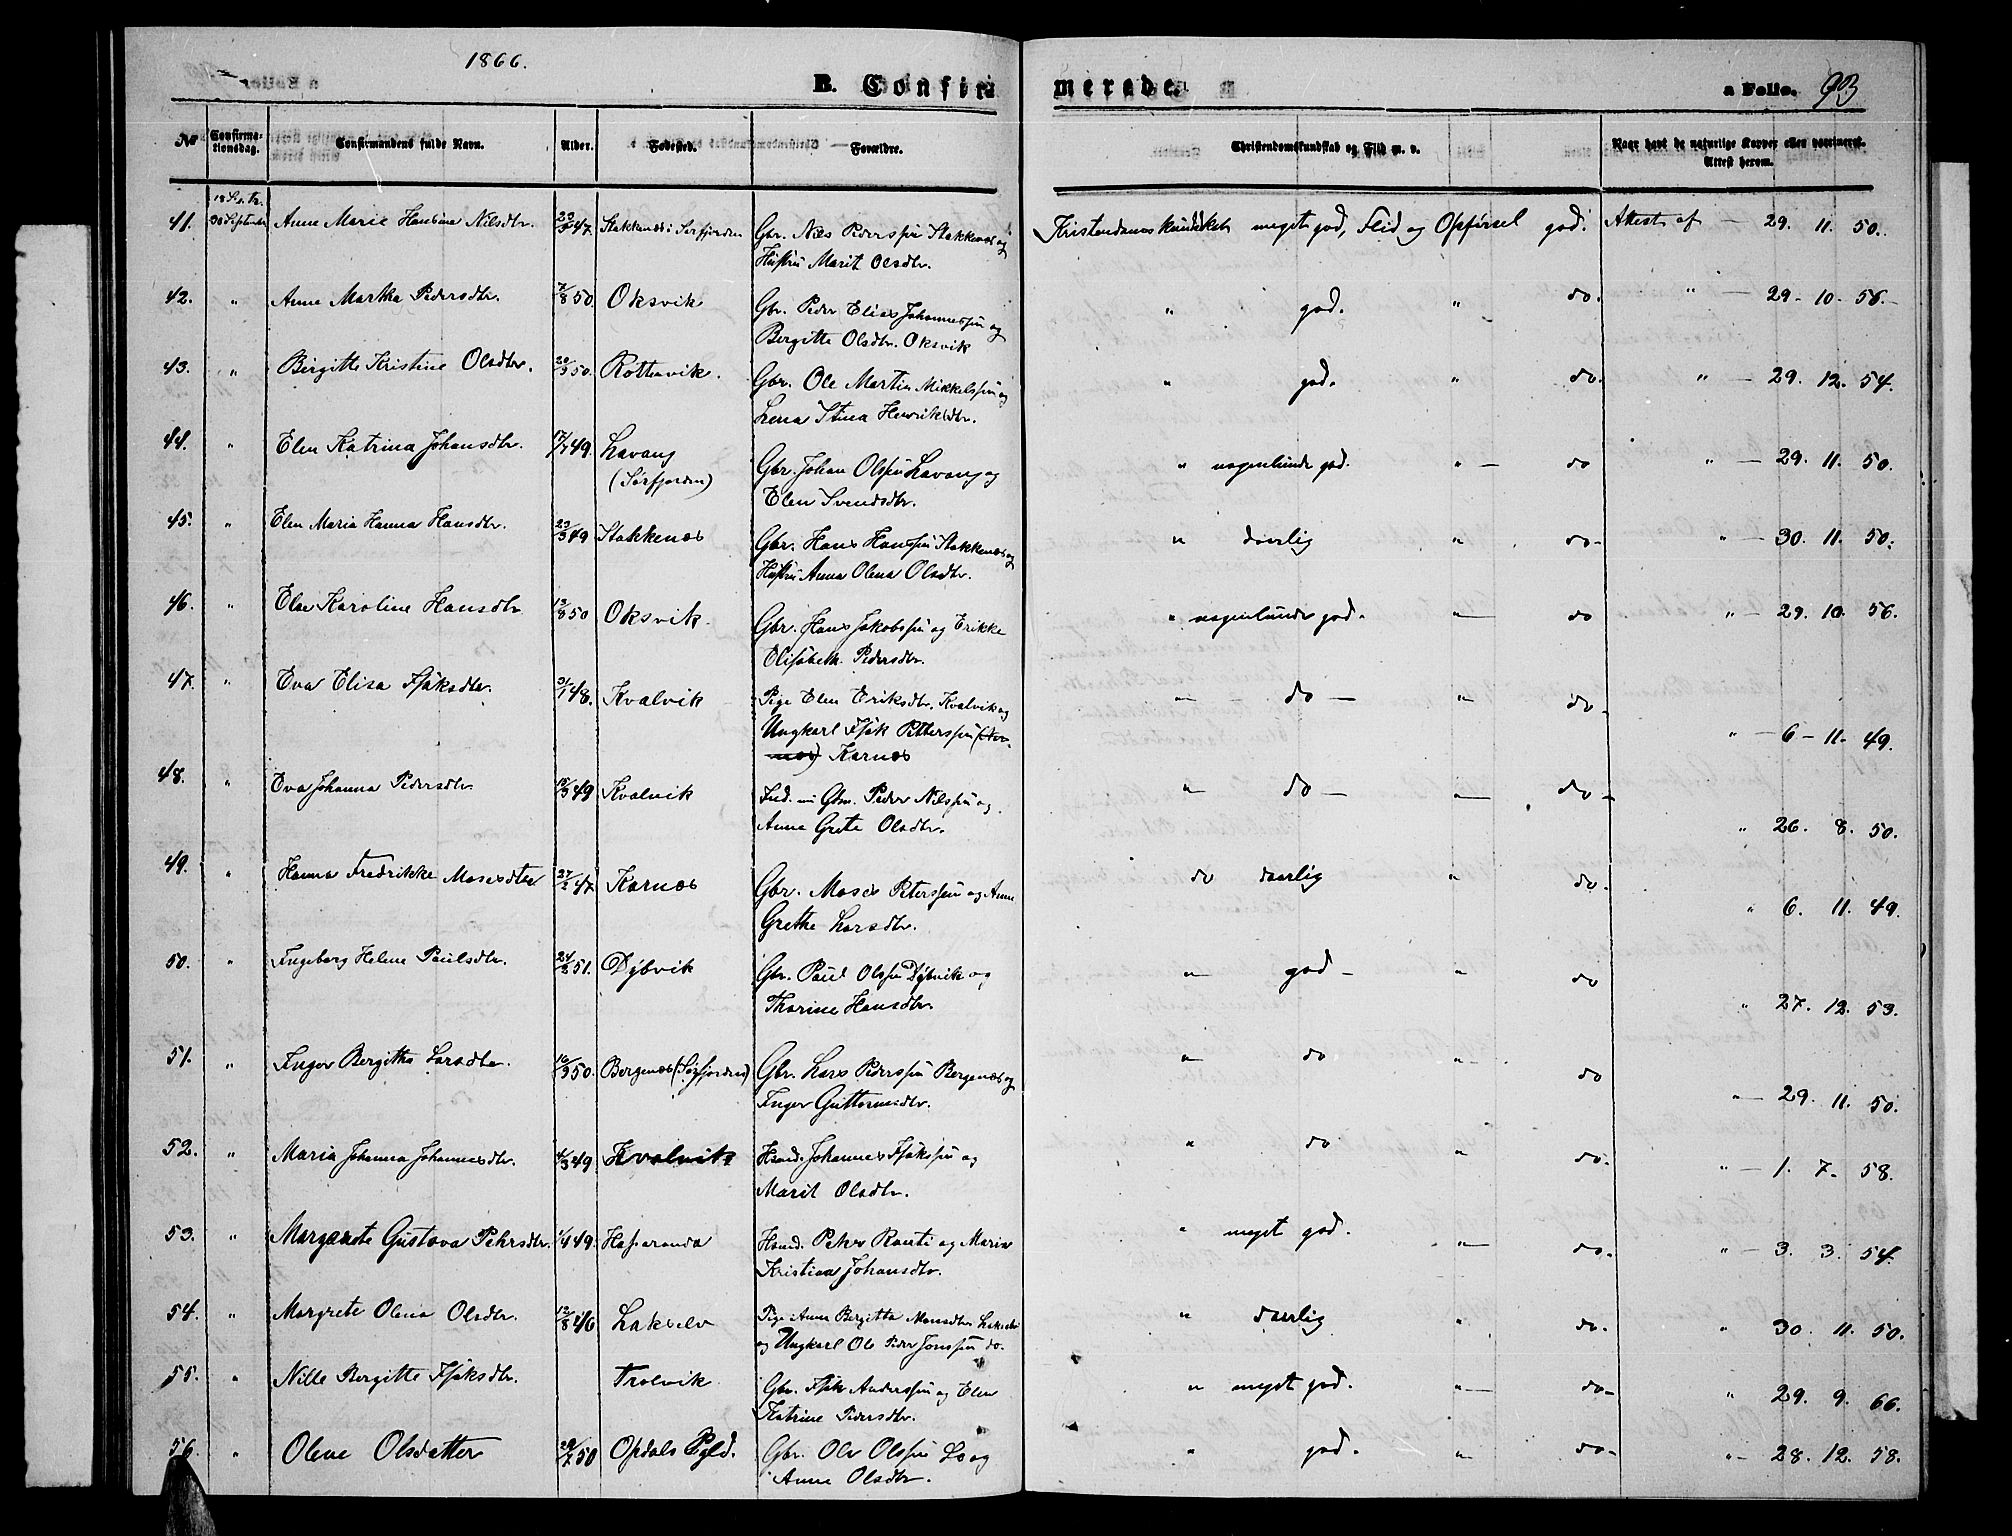 1866.
B. Confirmerede. a Folio. 93
No Confirmationsdag. Confirmandens fulde Navn. Alder. Fødested. Forældre. Christendomskundskab og Flid m. v. Naar havt de naturlige Kopper eller vaccineret. Attest herom.
18 S. e. Tr.
41. 30 September Anne Marie Hansina Nilsdtr. 47. Stakkenæs i Sørfjorden Gbr. Nils Pederssøn Stakkenæs og Kristendomskundskab meget god, Flid og Opførsel god. Attest af — 29. 11. 50.
Hustru Marit Olsdtr.
42. " Anne Martha Pedersdtr. 7/8 50. Oksvik Gbr. Peder Elias Johannessøn og " god. " do. " — 29. 10. 56.
Bergitte Olsdtr. Oksvik
43. " Birgitte Kristine Olsdtr. 20/3 50. Rottenvik. Gbr. Ole Martin Mikkelssøn og " god. " do. " — 29. 12. 54.
Lena Stina Henriksdtr.
44. " Elen Katrina Johansdtr. 17/7 49. Lavang Gbr. Johan Olssøn Lavang og " nogenlunde god. " — do " — 29. 11. 50.
(Sørfjorden) Elen Svendsdtr.
45. " Elen Maria Hanna Hansdtr. 23/3 49 Stakkenæs Gbr. Hans Hanssøn Stakkenæs og " daarlig " do- " — 30. 11. 50.
Hustru Anna Olena Olsdtr.
46. " Else Karoline Hansdtr 13/8 50 Oksvik. Gbr. Hans Jakobssøn og Erikke " nogenlunde god. " — do " — 29. 10. 56.
Elisabeth Pedersdtr.
47. " Eva Elisa Isaksdtr. 48. Kvalvik Pige Elen Eriksdtr. Kvalvik og " — do — " do-
Ungkarl Isak Petterssøn " — 6 — 11. 49.
Karnæs
48. " Eva Johanna Pedersdtr. 15/3 49 Kvalvik Ind. Gbm. Peder Nilssøn og " do — " — do-
Anne Grete Olsdtr. " 26. 8. 50.
49. " Hanna Fredrikke Mosesdtter 27/2 47. Karnæs Gbr. Moses Peterssøn og Anne do daarlig " do.
Grethe Larsdtr. " 6. 11. 49.
50. " Ingeborg Helene Paulsdtr. 51. Dybvik Gbr. Paul Olssøn Dybvik og " god — " do
Thorine Hansdtr. " 27. 12. 53.
51. " Inger Bergitha Larsdtr. 16/3 50. Bergenæs (Sørfjorden) Gbr. Lars Pederssøn Bergenæs og " do " do
Inger Guttormsdtr. " — 29. 11. 50.
52. " Maria Johanna Johannesdtr. 4/3 49 Kvalvik Hmd. Johannes Isakssøn og " do " do.
Marit Olsdtr. " — 1. 7. 58.
53. " Margarete Gustava Petersdtr. 49. Haparanda Hmd. Peter Rauti og Maria " meget god. " — do. " — 3. 3. 54.
Kristina Johansdtr.
54. " Margrete Olena Olsdtr. 12/8 46 Lakselv Pige Anne Bergitta Monsdtr. Lakselv " daarlig " do. " 30. 11. 50.
og Ungkarl Ole Peder Jonssøn do.
55. " Nille Bergitte Isaksdtr. Trolvik Gbr. Isak Anderssøn og Elen " meget god. " — do- " 29. 9. 66.
Katrine Pedersdtr.
56. " Olene Olsdatter 50 Opdals Pgld. Gbr. Ole Olssøn Lo og " god. " do- " — 28. 12. 58.
Anne Olsdtr.